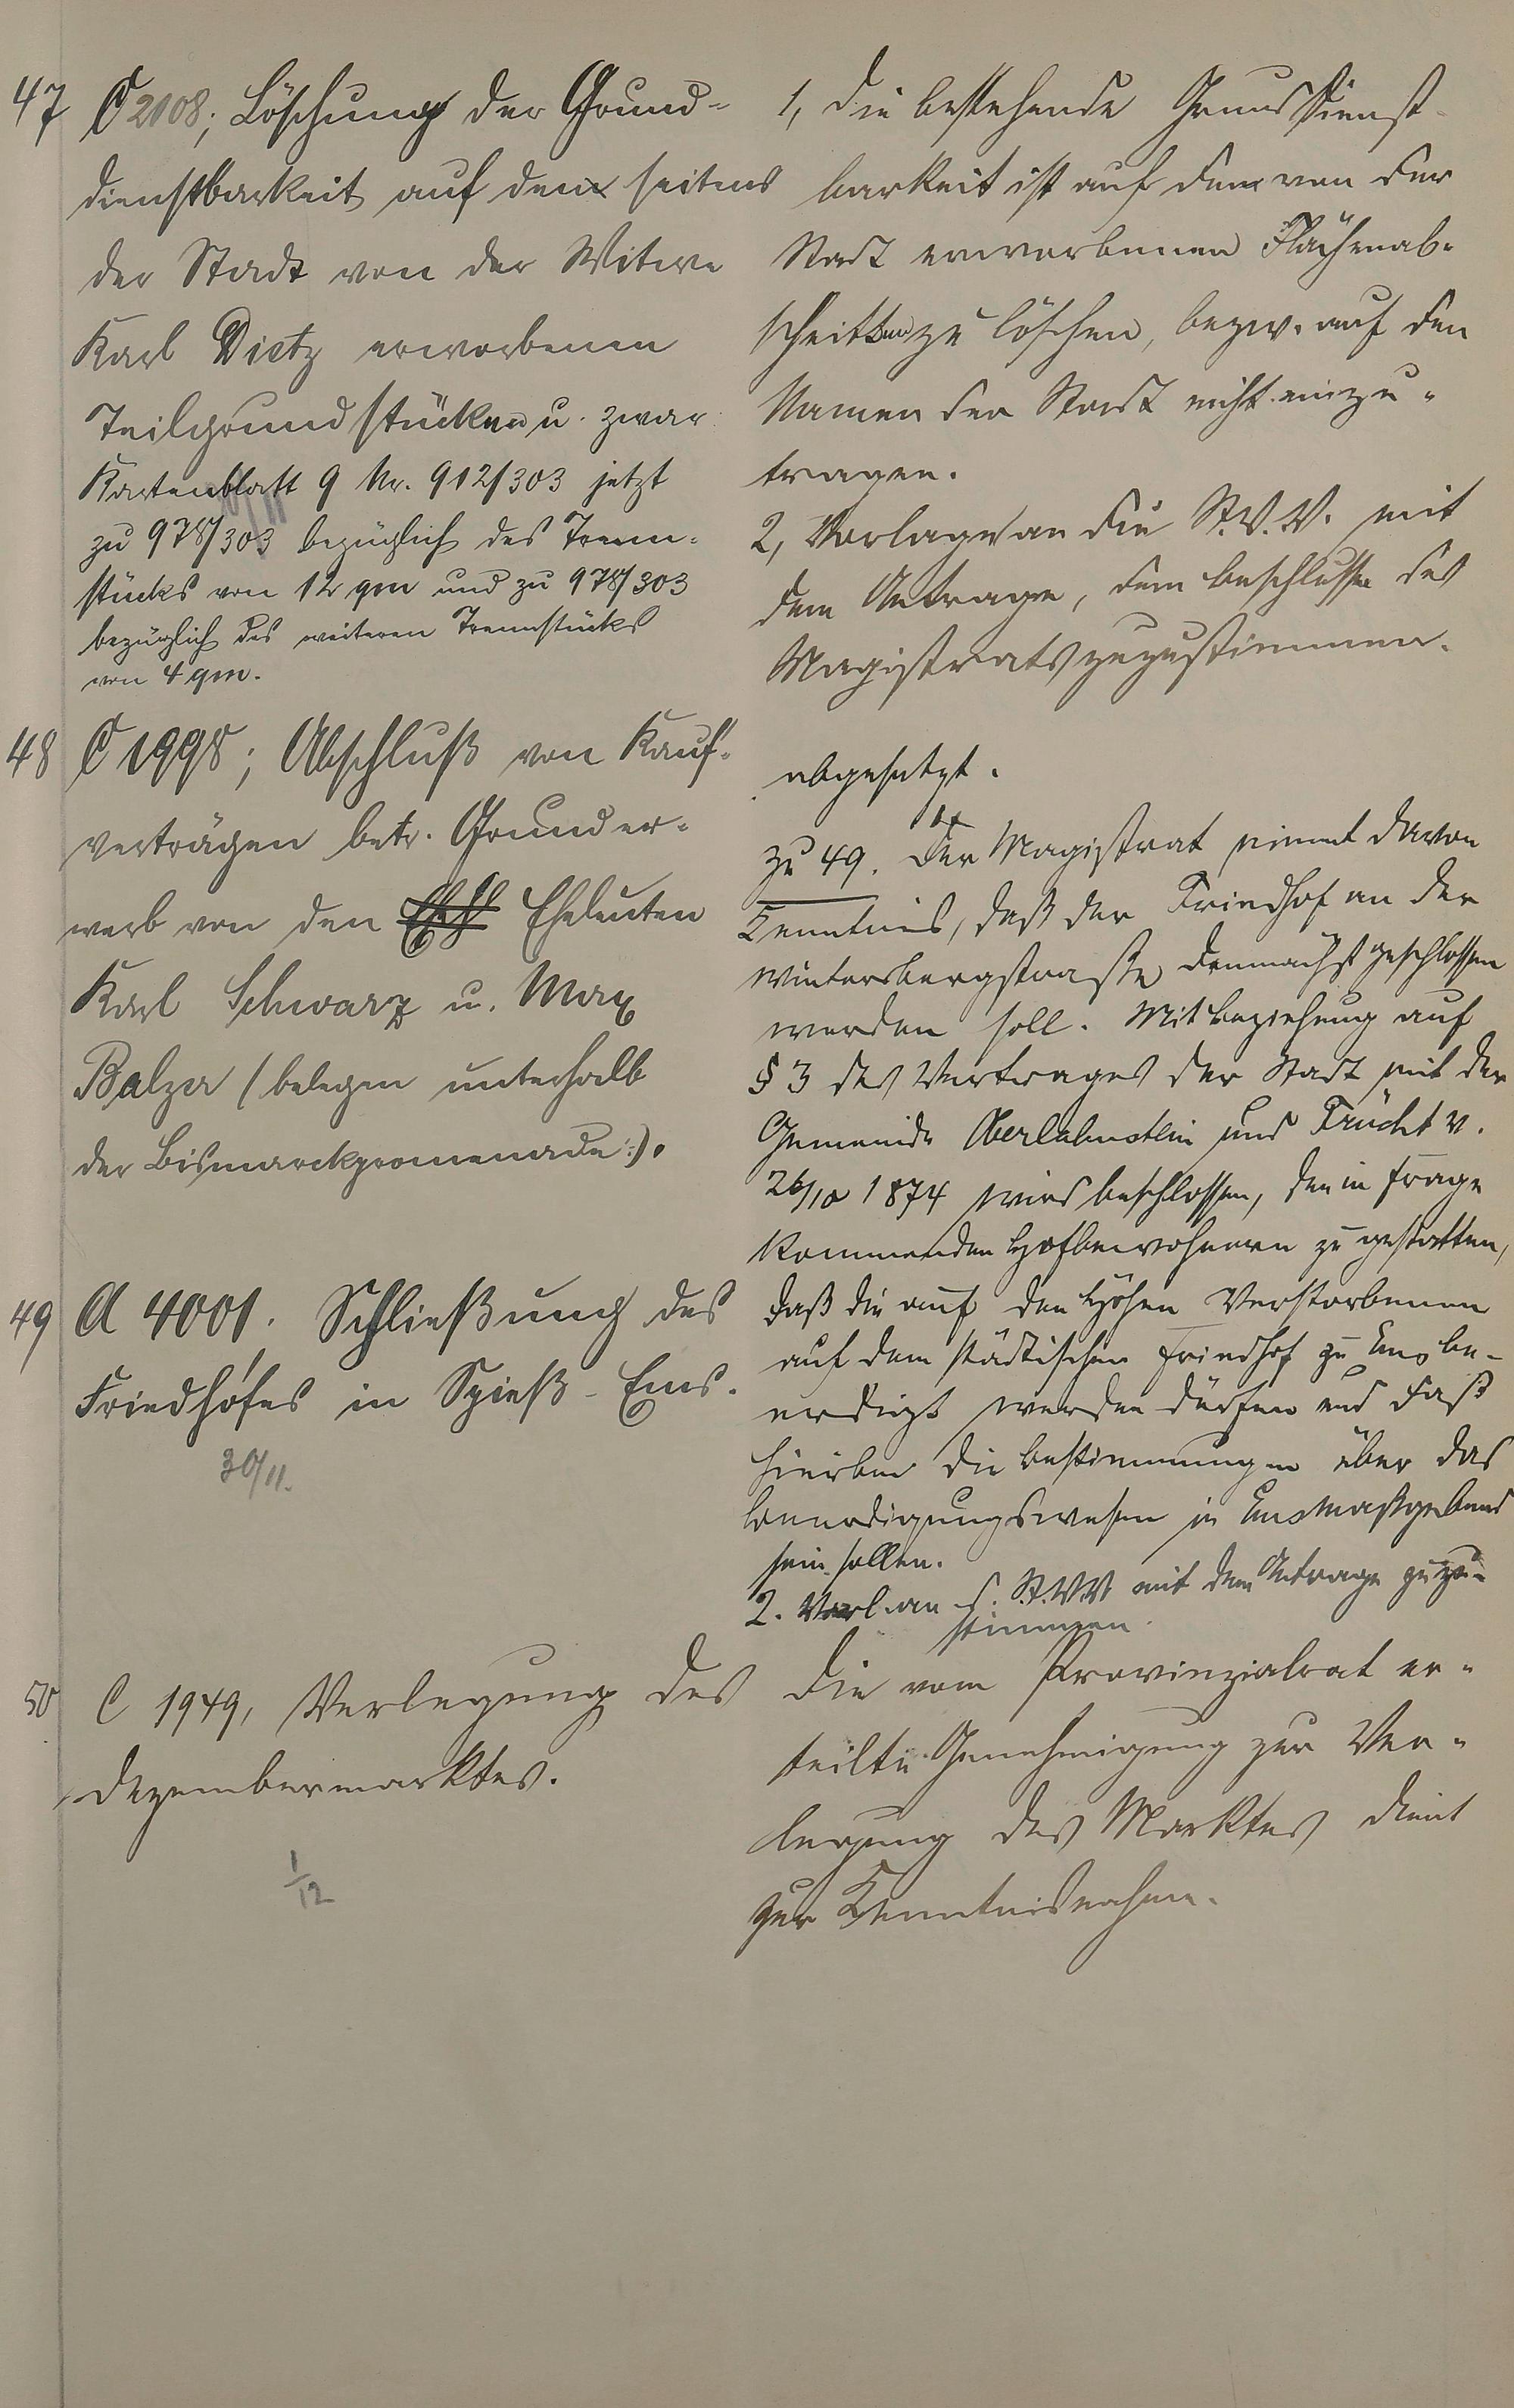 47 C 2108; Löschung der Grund-
dienstbarkeit auf den seitens
der Stadt von der Witwe
Karl Dietz erworbenen
Teilgrundstücken u. zwar
Kartenblatt 9 Nr. 912/303 jetzt
zu 978/303 bezüglich des Trenn-
stücks von 12 qm und zu 978/303
bezüglich des weiteren Trennstücks
von 4 qm.
1, Die bestehende Grunddienst-
barkeit ist auf den von der
Stadt erworbenen Flächenab-
schnitten zu löschen, bezw. auf den
Namen der Stadt nicht einzu-
tragen.
2, Vorlage an die St. V. V. mit
dem Antrage, dem Beschlusse des
Magistrats zuzustimmen.
48 C 1998; Abschluß von Kauf-
verträgen betr. Grunder-
werb von den Eheleuten
Karl Schwarz u. Max
Balzer (belegen unterhalb
der Bismarckpromenade:).
abgesetzt.
49 A 4001. Schließung des
Friedhofes in Spieß-Ems.
30/11.
zu 49. Der Magistrat nimmt davon
Kenntnis, daß der Friedhof an der
Wintersbergstraße demnächst geschlossen
werden soll. Mit Beziehung auf
§ 3 des Vertrages der Stadt mit der
Gemeinde Oberlahnstein und Frücht v.
26/10 1874 wird beschlossen, den in Frage
kommenden Hofbewohnern zu gestatten,
daß die auf den Höhen Verstorbenen
auf dem städtischen Friedhof zu Ems be-
erdigt werden dürfen und daß
hierbei die Bestimmungen über das
Beerdigungswesen in Ems maßgebend
sein sollen.
2. Vorl. an d. St.V.V. mit dem Antrage zuzu-
stimmen.
50 C 1949, Verlegung des
Dezembermarktes.
1/12
Die vom Provinzialrat er-
teilte Genehmigung zur Ver-
legung des Marktes dient
zur Kenntnisnahme.